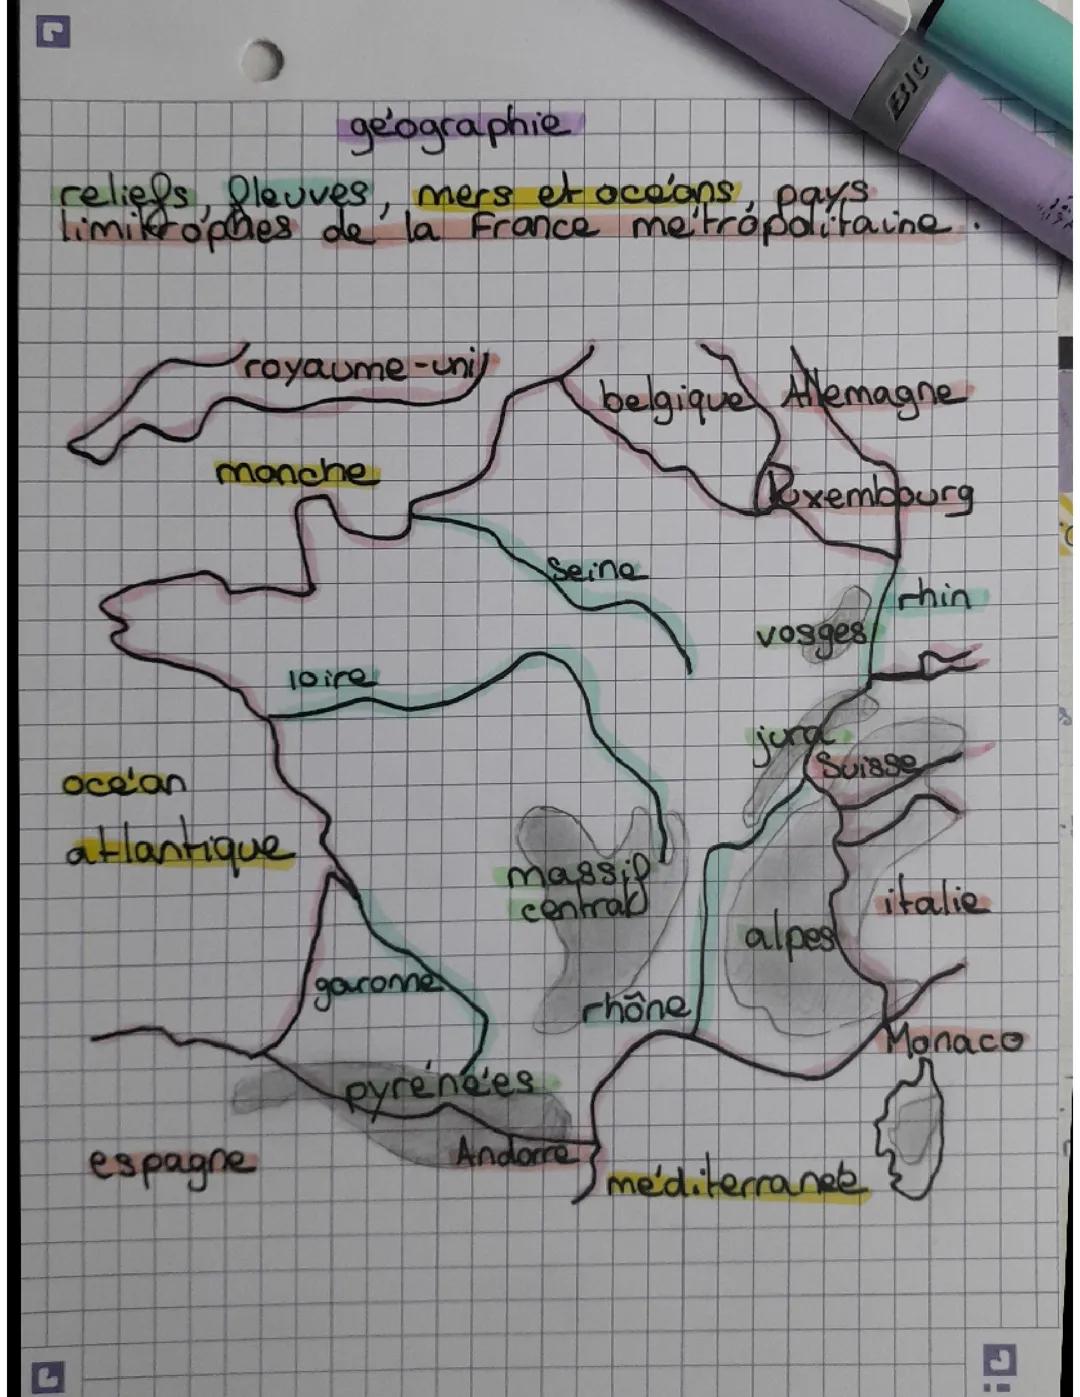 BIC
géographie
reliefs, fleuves, mers et océans, pays
limitrophes de la France métropolitaine.
royaume-uni
belgique
Allemagne
manche
luxembourg
Seine
rhin
vosges
loire
jura
Suisse
océan
atlantique
massif
central
italie
alpes
garonne
rhône
Monaco
pyrénées
Andorre
espagne
méditerranée